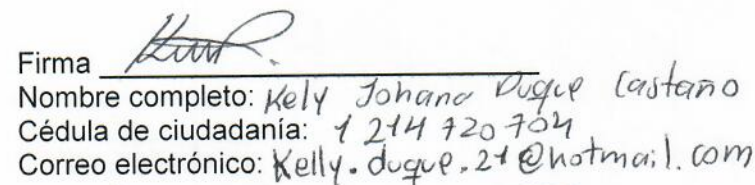 Firma
Nombre completo: Kely Johana Duque Castaño
Cédula de ciudadanía: 1 214 720 704
Correo electrónico: Kelly.duque.21@hotmail.com